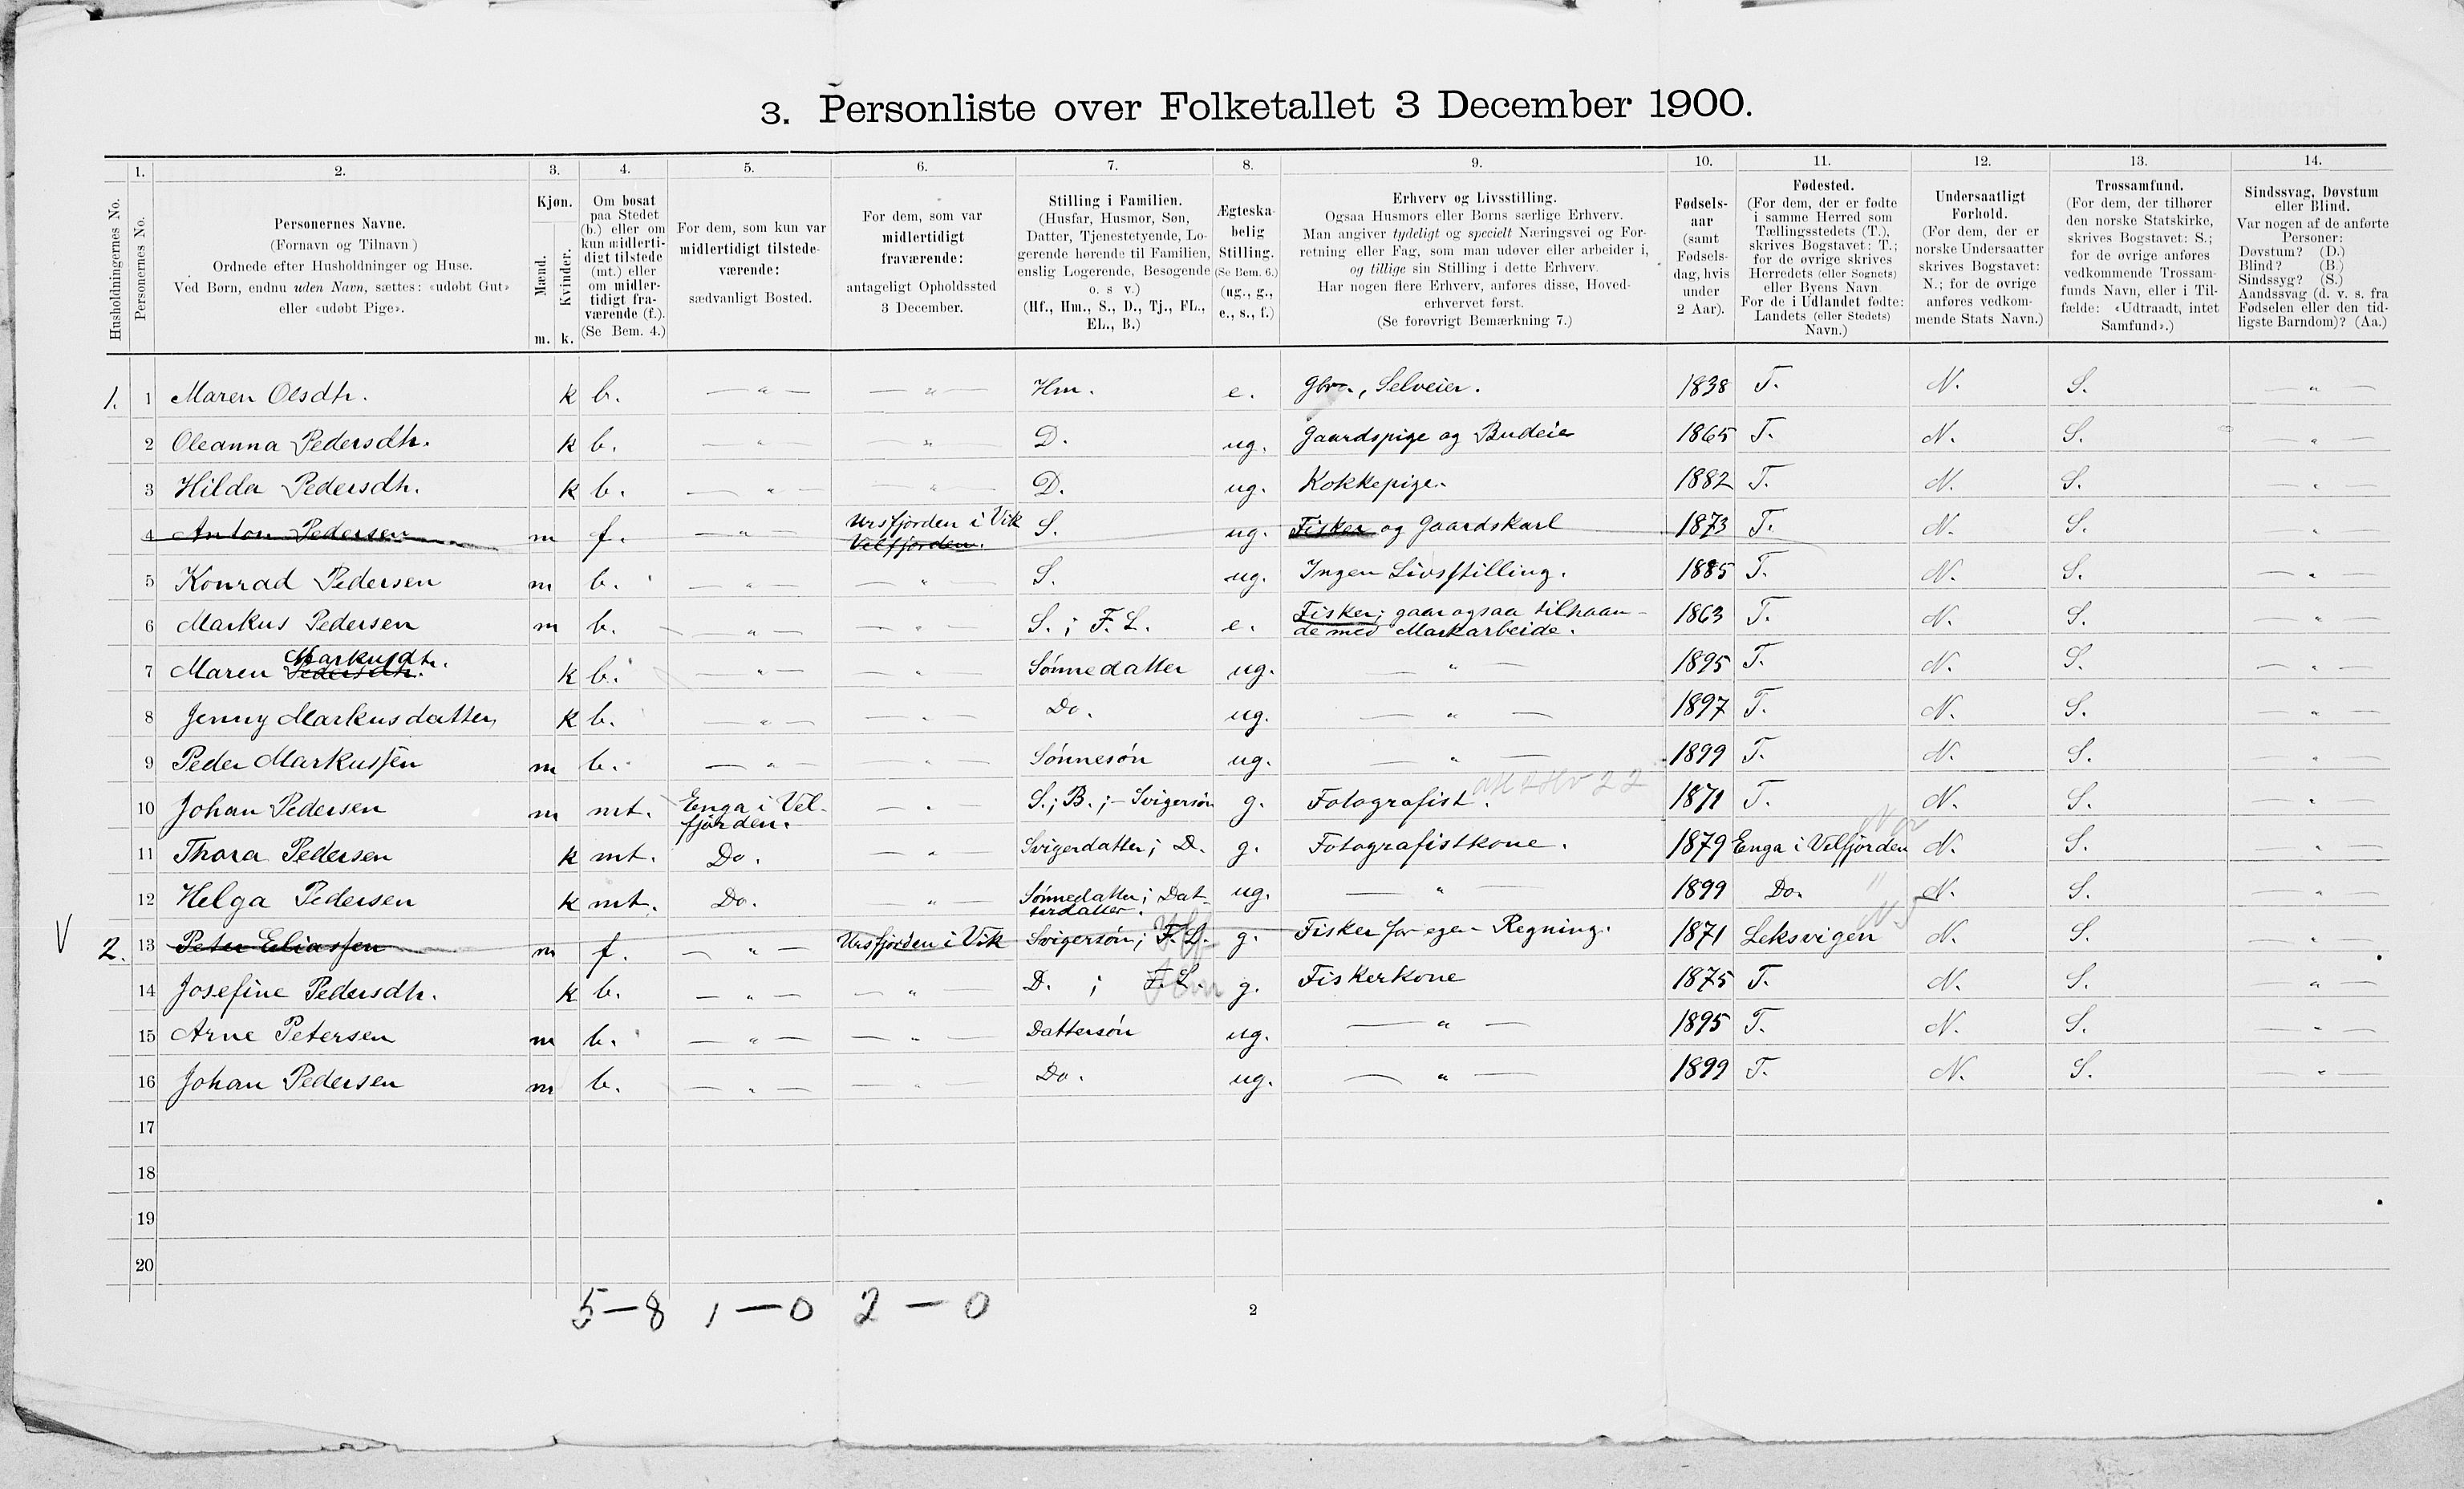 3. Personliste over Folketallet 3 December 1900.
Husholdningernes No.
1.
Personernes No.
2.
Personernes Navne.
(Fornavn og Tilnavn)
Ordnede efter Husholdninger og Huse.
Ved Børn, endnu uden Navn, sættes: «udøbt Gut»
eller «udøbt Pige».
3.
Kjøn.
Mænd.
Kvinder.
m. k.
4.
Om bosat
paa Stedet
(b.) eller om
kun midlerti-
digt tilstede
(mt.) eller
om midler-
tidigt fra-
værende (f.).
(Se Bem. 4.)
5.
For dem, som kun var
midlertidigt tilstede-
værende:
sædvanligt Bosted.
6.
For dem, som var
midlertidigt
fraværende:
antageligt Opholdssted
3 December.
7.
Stilling i Familien.
(Husfar, Husmor, Søn,
Datter, Tjenestetyende, Lo-
gerende hørende til Familien,
enslig Logerende, Besøgende
o. s v.)
(Hf., Hm., S., D., Tj., FL.,
EL., B.)
8.
Ægteska-
belig
Stilling.
(Se Bem. 6.)
(ug., g.,
e., s., f.)
9.
Erhverv og Livsstilling.
Ogsaa Husmors eller Børns særlige Erhverv.
Man angiver tydeligt og specielt Næringsvei og For-
retning eller Fag, som man udøver eller arbeider i,
og tillige sin Stilling i dette Erhverv.
Har nogen flere Erhverv, anføres disse, Hoved-
erhvervet først.
(Se forøvrigt Bemærkning 7.)
10.
Fødsels-
aar
(samt
Fødsels-
dag, hvis
under
2 Aar).
11.
Fødested.
(For dem, der er fødte
i samme Herred som
Tællingsstedets (T.),
skrives Bogstavet: T.;
for de øvrige skrives
Herredets (eller Sognets)
eller Byens Navn
For de i Udlandet fødte:
Landets (eller Stedets)
Navn.)
12.
Undersaatligt
Forhold.
(For dem, der er
norske Undersaatter
skrives Bogstavet:
N.; for de øvrige
anføres vedkom-
mende Stats Navn.)
13.
Trossamfund.
(For dem, der tilhører
den norske Statskirke,
skrives Bogstavet: S.;
for de øvrige anføres
vedkommende Trossam-
funds Navn, eller i Til-
fælde: «Udtraadt, intet
Samfund».)
14.
Sindssvag, Døvstum
eller Blind.
Var nogen af de anførte
Personer:
Døvstum? (D.)
Blind? (B.)
Sindssyg? (S.)
Aandssvag (d. v. s. fra
Fødselen eller den tid-
ligste Barndom)? (Aa.)
1. 1 Maren Olsdtr. k b. — " — — " — Hm. e. Gbr., Selveier. 1838 T. N. S. — " —
2 Oleanna Pedersdtr. k b. — " — — " — D. ug. Gaardspige og Budeie 1865 T. N. S. — " —
3 Hilda Pedersdtr. k b. — " — — " — D. ug. Kokkepige. 1882 T. N. S. — " —
4 Anton Pedersen m f. — " — Ursfjorden i Vik Velfjorden. S. ug. Fisker og Gaardskarl 1873 T. N. S. "
5 Konrad Pedersen m b. — " — — " — S. ug. Ingen Livsstilling. 1885 T. N. S. — " —
6 Markus Pedersen m b. — " — — " — S. ; F. L. e. Fisker; gaar ogsaa tilhaan-
de med Markarbeide. 1863 T. N. S. — " —
7 Maren Pedersdtr. Markusdtr. k b. — " — — " — Sønnedatter ug. — " — 1895 T. N. S. — " —
8 Jenny Markusdatter k b. — " — — " — Do. ug. — " — 1897 T. N. S. — " —
9 Peder Markussen m b. — " — — " — Sønnesøn ug. — " — 1899 T. N. S. — " —
10 Johan Pedersen m mt. Enga i Vel-
fjorden. — " — S.; B.; - Svigersøn g. Fotografist. 1871 T. N. S. — " —
11 Thora Pedersen k mt. Do. — " — Svigerdatter; D. g. Fotografistkone. 1879 Enga i Velfjorden N. S. — " —
12 Helga Pedersen k mt. Do. — " — Sønnedatter; Dat-
terdatter. ug. — " — 1899 Do. N. S. — " —
V 2. 13 Peter Eliassen m f. — " — Ursfjorden i Vik Svigersøn; F. L. g. Fisker for egen Regning. 1871 Leksvigen N. S. — " —
14 Josefine Pedersdtr. k b. — " — — " — D. ; F. L. Hm g. Fiskerkone 1875 T. N. S. — " —
15 Arne Petersen m b. — " — — " — Dattersøn ug. — " — 1895 T. N. S. — " —
16 Johan Pedersen m b. — " — — " — Do. ug. — " — 1899 T. N. S. — " —
17
18
19
20
5—8 1—0 2—0
2